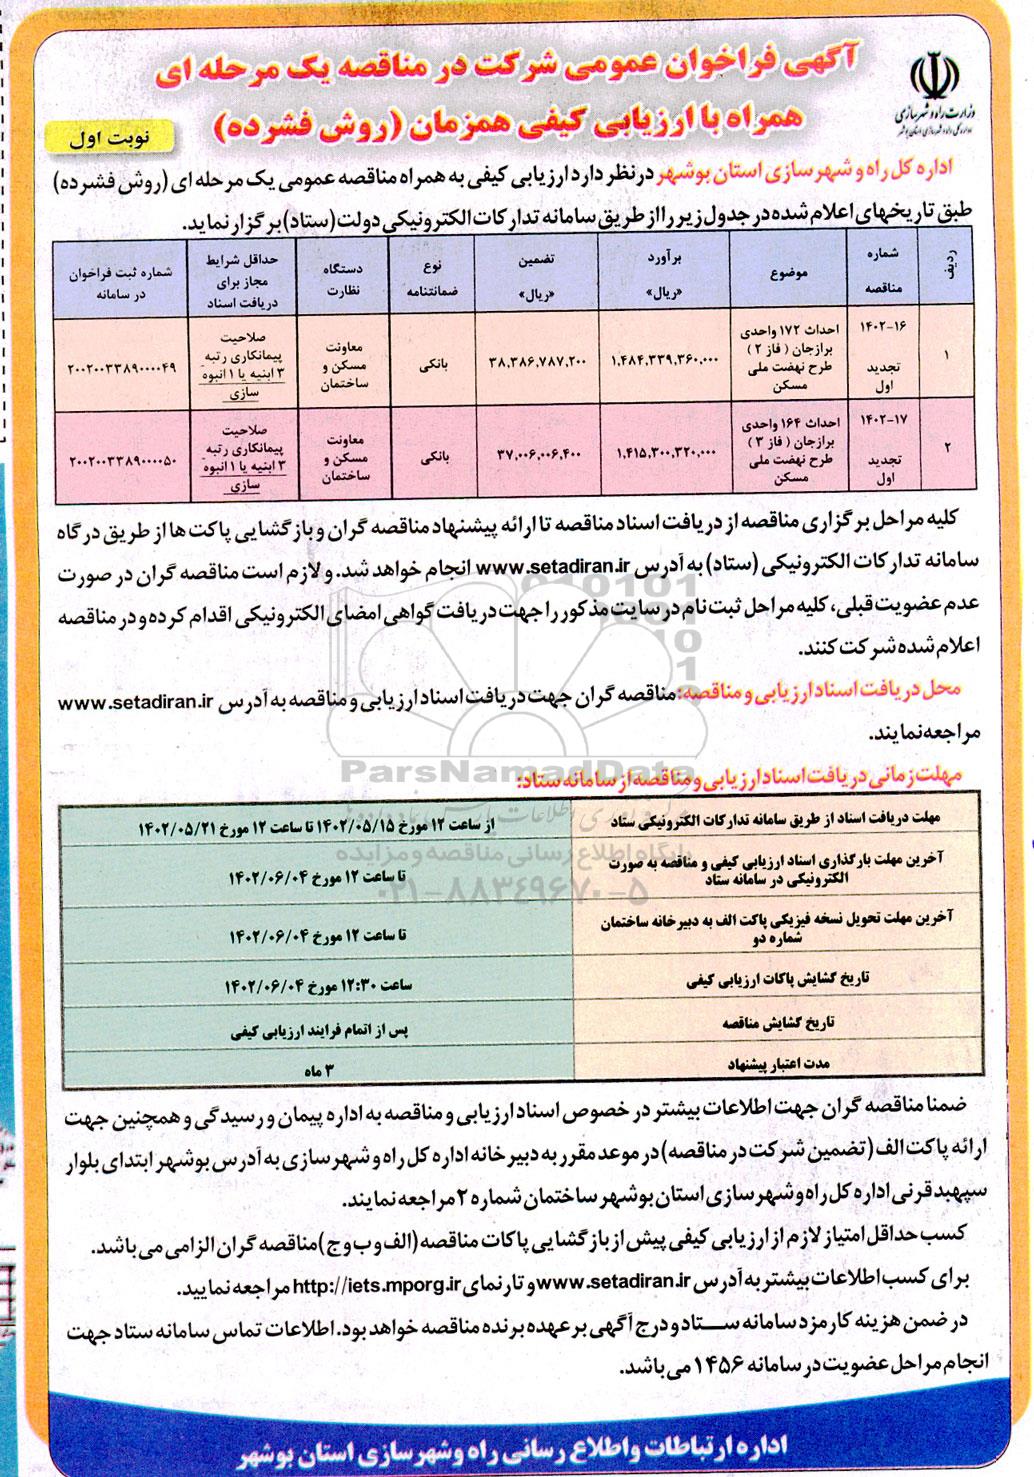 آگهی فراخوان عمومی شرکت در مناقصه یک مرحله ای
همراه با ارزیابی کیفی همزمان (روش فشرده)
وزارت راه و شهرسازی
اداره کل راه و شهرسازی استان بوشهر
نوبت اول
اداره کل راه و شهرسازی استان بوشهر درنظر دارد ارزیابی کیفی به همراه مناقصه عمومی یک مرحله ای (روش فشرده)
طبق تاریخهای اعلام شده در جدول زیر را از طریق سامانه تدارکات الکترونیکی دولت (ستاد) برگزار نماید.
ردیف | شماره مناقصه | موضوع | برآورد «ریال» | تضمین «ریال» | نوع ضمانتنامه | دستگاه نظارت | حداقل شرایط مجاز برای دریافت اسناد | شماره ثبت فراخوان در سامانه
۱ | ۱۴۰۲-۱۶ تجدید اول | احداث ۱۷۲ واحدی برازجان ( فاز ۲ ) طرح نهضت ملی مسکن | ۱،۴۸۴،۳۳۹،۳۶۰،۰۰۰ | ۳۸،۳۸۶،۷۸۷،۲۰۰ | بانکی | معاونت مسکن و ساختمان | صلاحیت پیمانکاری رتبه ۳ ابنیه یا ۱ انبوه سازی | ۲۰۰۲۰۰۳۳۸۹۰۰۰۰۴۹
۲ | ۱۴۰۲-۱۷ تجدید اول | احداث ۱۶۴ واحدی برازجان ( فاز ۳ ) طرح نهضت ملی مسکن | ۱،۴۱۵،۳۰۰،۳۲۰،۰۰۰ | ۳۷،۰۰۶،۰۰۶،۴۰۰ | بانکی | معاونت مسکن و ساختمان | صلاحیت پیمانکاری رتبه ۳ ابنیه یا ۱ انبوه سازی | ۲۰۰۲۰۰۳۳۸۹۰۰۰۰۵۰
کلیه مراحل برگزاری مناقصه از دریافت اسناد مناقصه تا ارائه پیشنهاد مناقصه گران و بازگشایی پاکت ها از طریق درگاه
سامانه تدارکات الکترونیکی (ستاد) به آدرس www.setadiran.ir انجام خواهد شد. و لازم است مناقصه گران در صورت
عدم عضویت قبلی، کلیه مراحل ثبت نام در سایت مذکور را جهت دریافت گواهی امضای الکترونیکی اقدام کرده و در مناقصه
اعلام شده شرکت کنند.
محل دریافت اسناد ارزیابی و مناقصه: مناقصه گران جهت دریافت اسناد ارزیابی و مناقصه به آدرس www.setadiran.ir
مراجعه نمایند.
ParsNamadData
مهلت زمانی دریافت اسناد ارزیابی و مناقصه از سامانه ستاد:
پایگاه اطلاع رسانی مناقصه و مزایده
۰۲۱-۸۸۳۴۹۶۷۰-۵
مهلت دریافت اسناد از طریق سامانه تدارکات الکترونیکی ستاد | از ساعت ۱۲ مورخ ۱۴۰۲/۰۵/۱۵ تا ساعت ۱۲ مورخ ۱۴۰۲/۰۵/۲۱
آخرین مهلت بارگذاری اسناد ارزیابی کیفی و مناقصه به صورت الکترونیکی در سامانه ستاد | تا ساعت ۱۲ مورخ ۱۴۰۲/۰۶/۰۴
آخرین مهلت تحویل نسخه فیزیکی پاکت الف به دبیرخانه ساختمان شماره دو | تا ساعت ۱۲ مورخ ۱۴۰۲/۰۶/۰۴
تاریخ گشایش پاکات ارزیابی کیفی | ساعت ۱۲:۳۰ مورخ ۱۴۰۲/۰۶/۰۴
تاریخ گشایش مناقصه | پس از اتمام فرایند ارزیابی کیفی
مدت اعتبار پیشنهاد | ۳ ماه
ضمنا مناقصه گران جهت اطلاعات بیشتر در خصوص اسناد ارزیابی و مناقصه به اداره پیمان و رسیدگی و همچنین جهت
ارائه پاکت الف (تضمین شرکت در مناقصه) در موعد مقرر به دبیرخانه اداره کل راه و شهرسازی به آدرس بوشهر ابتدای بلوار
سپهبد قرنی اداره کل راه و شهرسازی استان بوشهر ساختمان شماره ۲ مراجعه نمایند.
کسب حداقل امتیاز لازم از ارزیابی کیفی پیش از بازگشایی پاکات مناقصه (الف و ب و ج) مناقصه گران الزامی می باشد.
برای کسب اطلاعات بیشتر به آدرس www.setadiran.ir و تارنمای http://iets.mporg.ir مراجعه نمایید.
در ضمن هزینه کارمزد سامانه ستاد و درج آگهی بر عهده برنده مناقصه خواهد بود. اطلاعات تماس سامانه ستاد جهت
انجام مراحل عضویت در سامانه ۱۴۵۶ می باشد.
اداره ارتباطات و اطلاع رسانی راه و شهرسازی استان بوشهر